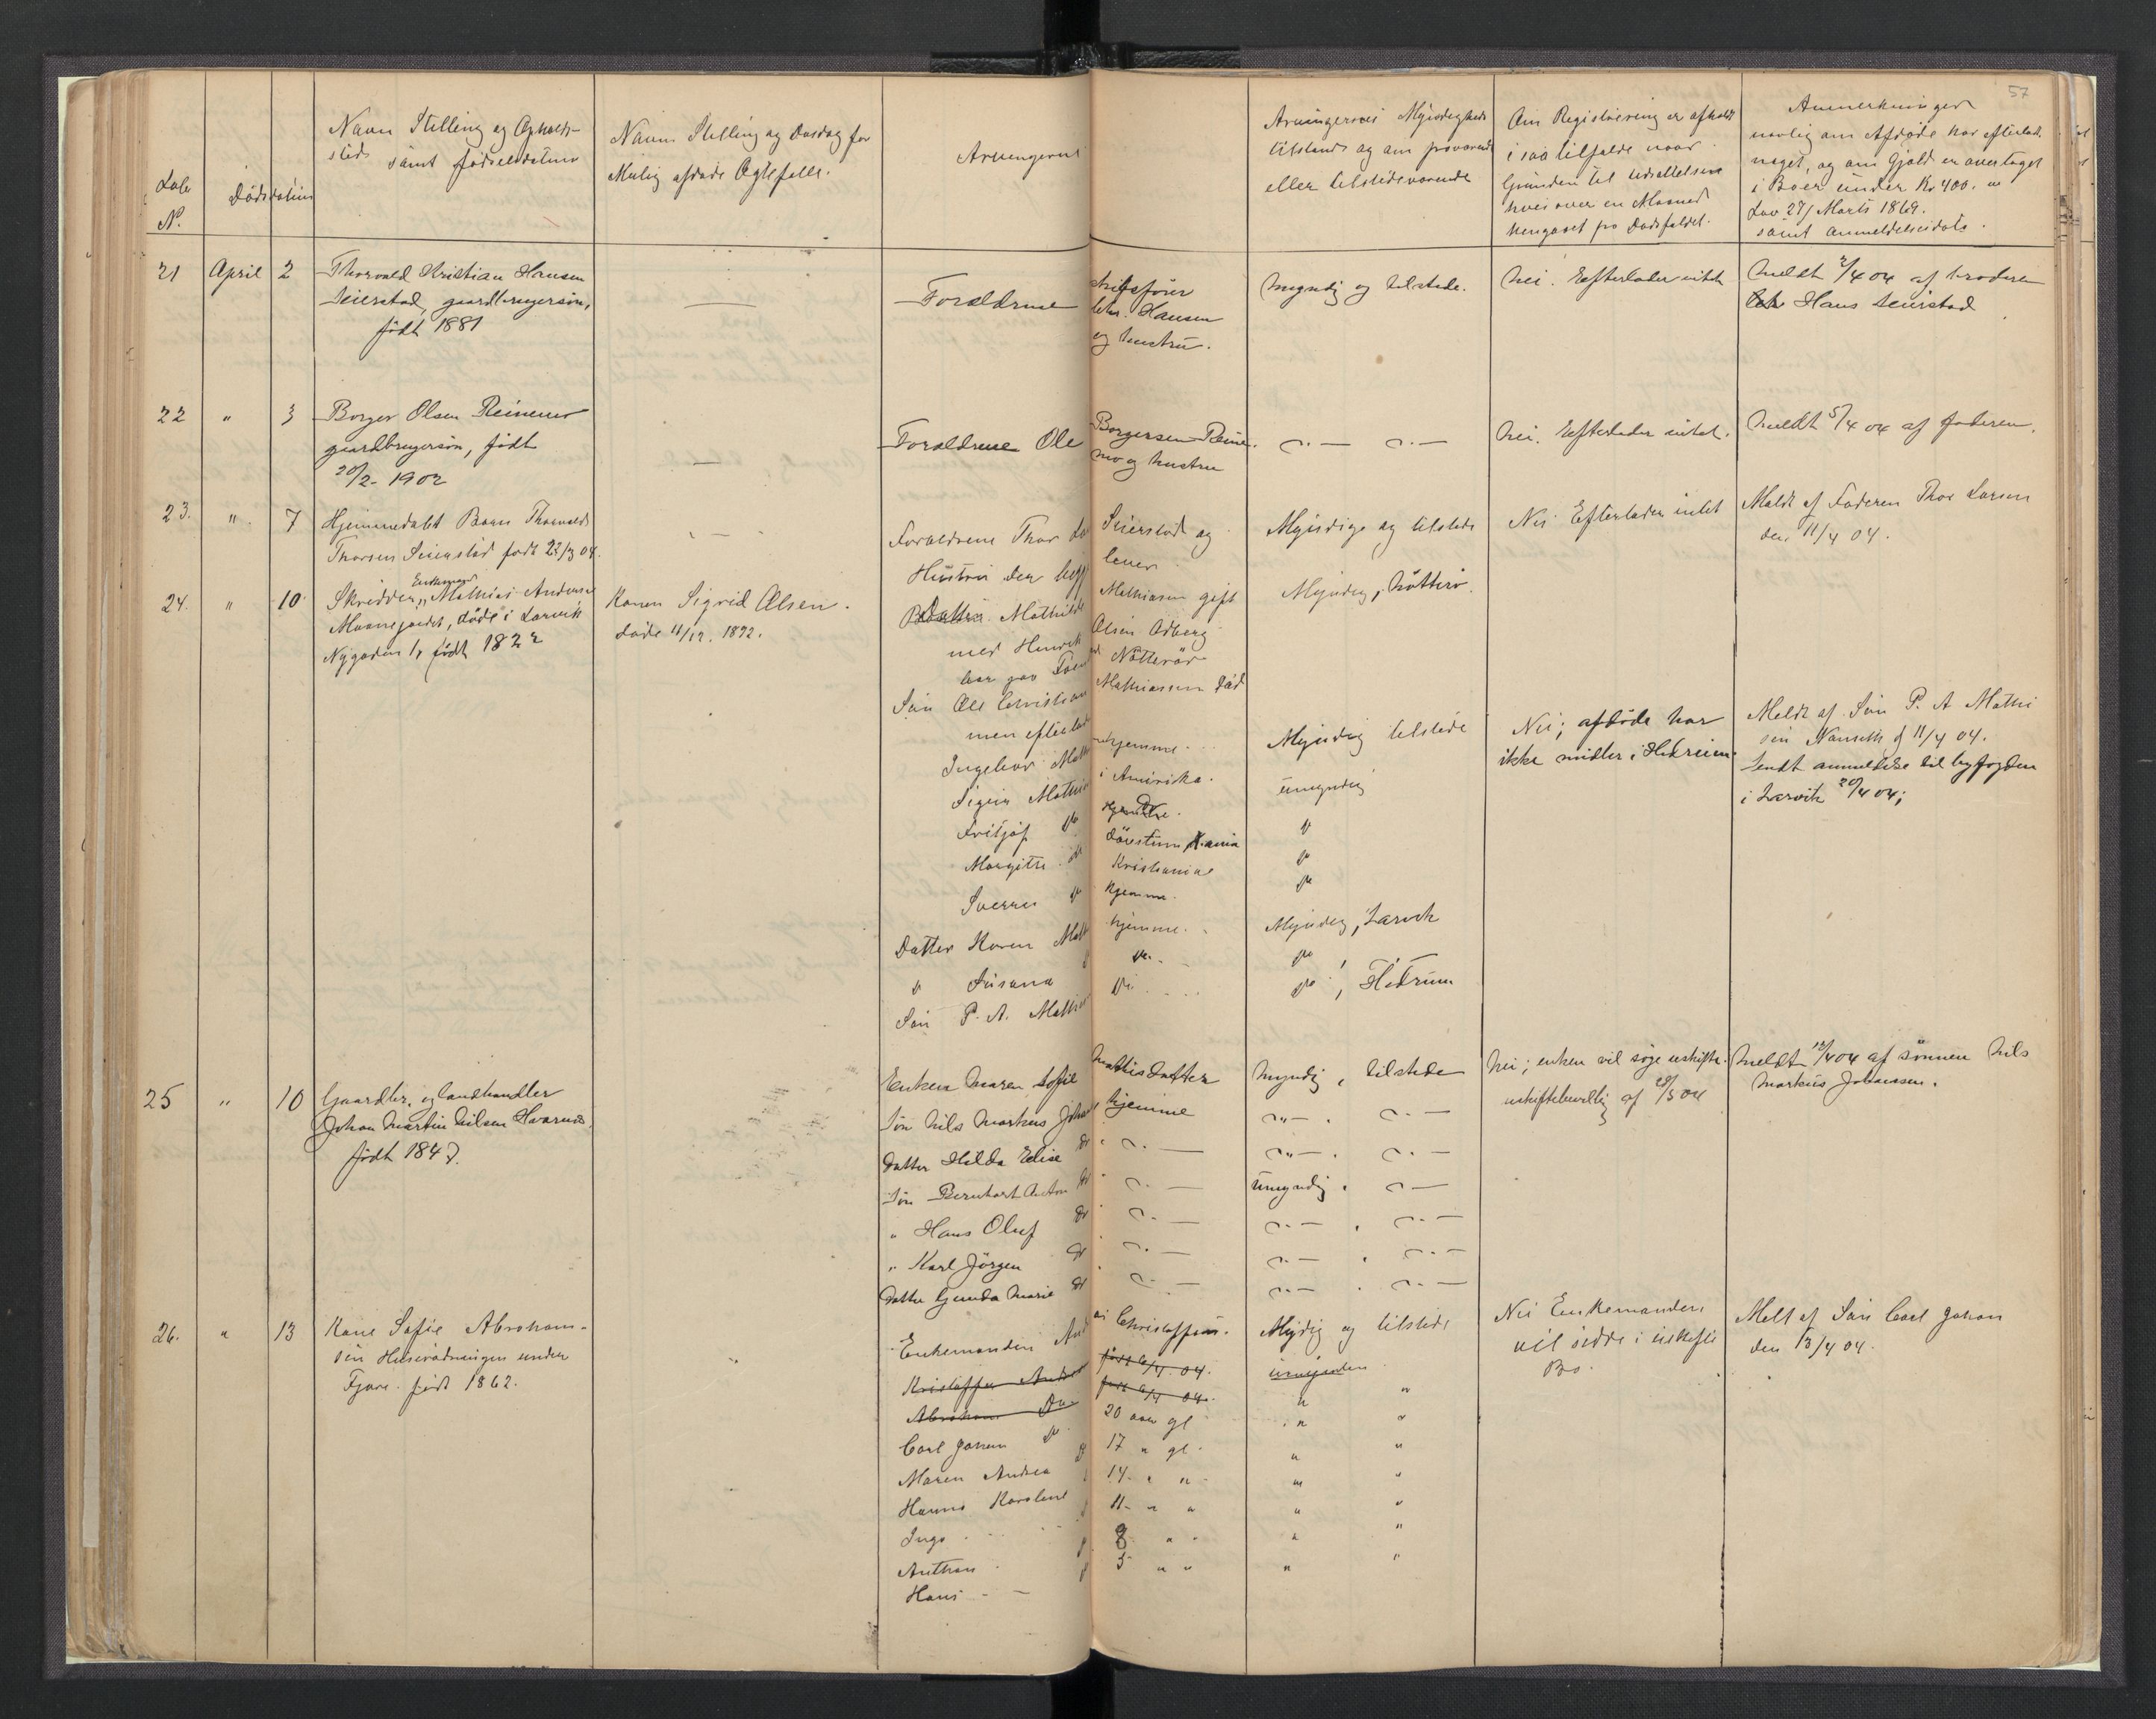 57
Navn Stilling og Opholds-
sted samt fødselsdatum
Navn Stilling og Dødsdag for
Mulig afdøde Ægtefælle.
Arvingernes
Arvingernes Myndigheds
tilstand og om fraværende
eller tilstedeværende
Om Registrering er afholdt
i saa tilfælde naar
Grunden til Udsættelsen
hvis over en Maaned
hengaaet fra Dødsfaldet.
Anmerkninger
navnlig om Afdøde har efterladt
noget, og om Gjæld er overtaget
i Boer under Kr 400.
Lov 27/ Marts 1869.
samt anmeldelsesdato.
Løbe
No.
Dødsdatum
21 April 2 Thorvald Kristian Hansen
Seierstad, gaardbrugersøn,
født 1881
—
Forældrene
Hansen
og hustru.
Myndig og tilstede.
Nei. Efterlader intet
Meldt 2/4 04 af broderen
Hans Seierstad
22 " 3 Borger Olsen Reinemo
gaardbrugersøn, født
20/2 - 1902
—
Forældrene Ole Borgersen Reine
mo og hustru
Nei. Efterlader intet.
Meldt 5/4 04 af faderen.
23. " 7 Hjemmedøbt Barn Thorvald
Thorsen Seierstad født 22/3 04.
Forældrene Thor La Seierstad og
Hustru der begge lever
Myndige og tilstede
Nei Efterlader intet
Meldt af Faderen Thor Larsen
den 11/4 04.
24. " 10 Skrædder, Enkemand Mathias Andersen
døde i Larvik
Nygaden 1, født 1822
Konen Sigrid Olsen.
døde 11/12. 1892.
Datter Mathilde Mathiasen gift
med Henrik Olsen Odberg
Nøtterø
Søn Ole Christian Mathiassen død
men efterladt
Ingebor Math hjemme
Sigurd Mathi i Amerika.
Fritjof do
Margithe do Kristiania
Sverre do hjemme.
Datter Karen Math hjemme.
" Susana do
Søn P. A. Mathi do
Myndig, Nøtterø.
Myndig tilstede
umyndig
do
do
do
Myndig, Larvik
do
do, Hedrum
Nei; afdøde har
ikke midler i Hedrum
Meldt af Søn P. A Mathi
sen Nanseth d 11/4 04.
Sendt anmeldelse til byfogden
i Larvik 20/4 04;
25 " 10 Gaardbr. og landhandler
Johan Martin Nilsen Hvarnes,
født 1847.
Enken Maren Sofie Mathisdatter
Søn Nils Markus Johans hjemme
Datter Hilda Elise do
Søn Bernhart Anton do
" Hans Oluf do
" Karl Jørgen do
Datter Gunda Marie do
Myndig, tilstede
umyndig.
Nei; enken vil søge uskifte.
uskiftebevilling af 28/5 04
Meldt 12/4 04 af sønnen Nils
Markus Johansen.
26. " 13 Kone Sofie Abraham-
sen Huserødningen under
Fjære. født 1862.
Enkemanden And Christoffersen.
Kristoffer Andre født 6/4. 04.
Abraham Do født 6/4 04.
Carl Johan do 20 aar gl
Maren Andrea 17 " gl.
Hanna Karoline 14 " "
Inga 11 " "
Anthon 8 " "
Hans 5 " "
Myndig og tilstede
umynden
Nei Enkemanden
vil sidde i uskiftet
Bo.
Meldt af Søn Carl Johan
den 13/4 04.